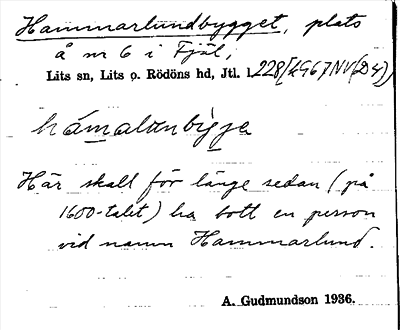 Hammarlundbygget, plats
å nr 6 i Fjäl,
Lits sn, Lits o. Rödöns hd, Jtl. l.
hámalonbìgje
Här skall för länge sedan (på
1600-talet) ha bott en person
vid namn Hammarlund.
A. Gudmundson 1936.